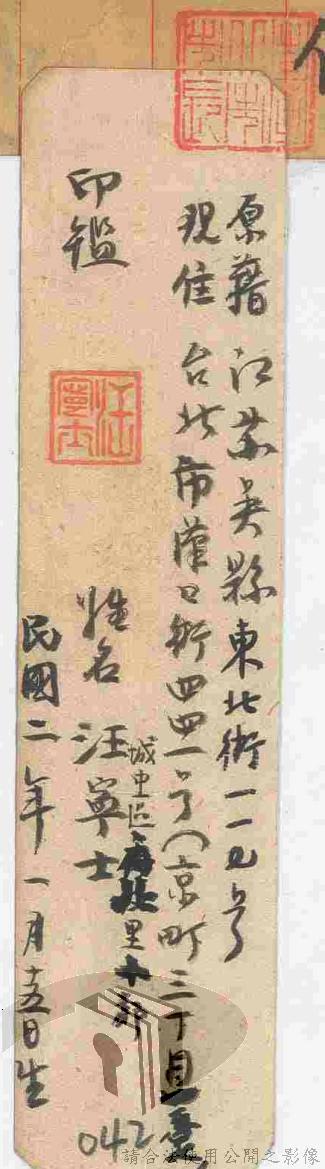 原籍 江蘇吳縣東北街一一九号
現住 台北市漢口街四四一号（京町三丁目
城中區 里十鄰
印鑑
姓名 汪寧士
汪寧士
民國二年一月十五日生
042
請合法使用公開之影像